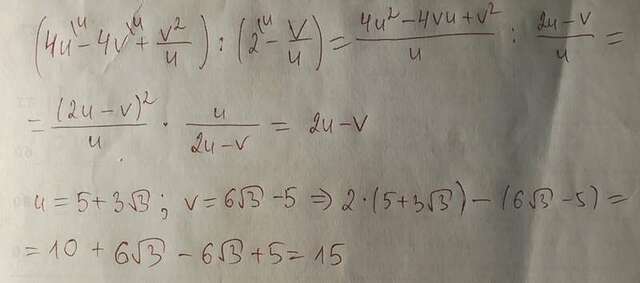 (4u^{\u} - 4v^{\u} + \frac{v^2}{u}) : (2^{\u} - \frac{v}{u}) = \frac{4u^2 - 4vu + v^2}{u} : \frac{2u - v}{u} =
= \frac{(2u - v)^2}{u} \cdot \frac{u}{2u - v} = 2u - v
u = 5 + 3√3 ; v = 6√3 - 5 ⇒ 2 · (5 + 3√3) - (6√3 - 5) =
= 10 + 6√3 - 6√3 + 5 = 15